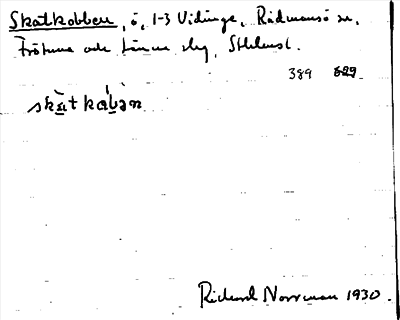 Skatkobben, ö, 1-3 Vidinge, Rådmansö sn,
Frötuna och Länna slg, Sthlmsl.
389 629
skàtkábàn
Rickard Norrman 1930.